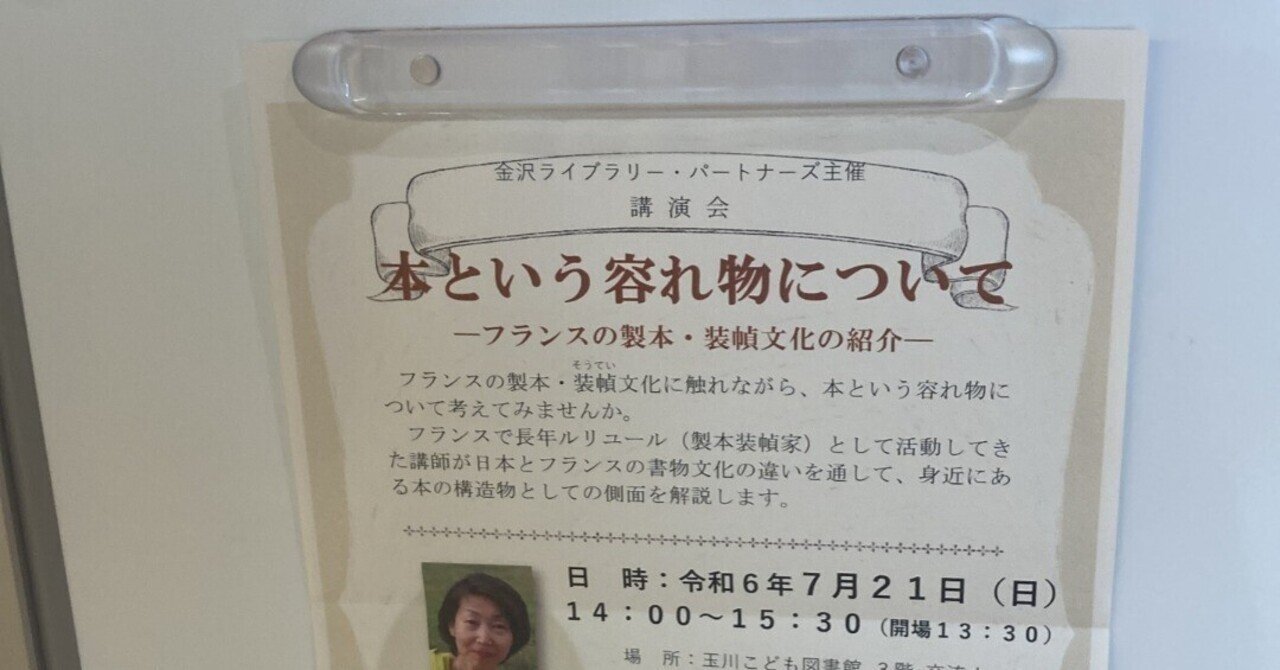 金沢ライブラリー・パートナーズ主催
講演会
本という容れ物について
―フランスの製本・装幀文化の紹介―
そうてい
フランスの製本・装幀文化に触れながら、本という容れ物に
ついて考えてみませんか。
フランスで長年ルリユール（製本装幀家）として活動してき
た講師が日本とフランスの書物文化の違いを通して、身近にあ
る本の構造物としての側面を解説します。
日　時：令和６年７月２１日（日）
１４：００～１５：３０（開場１３：３０）
場　所：玉川こども図書館 ３階